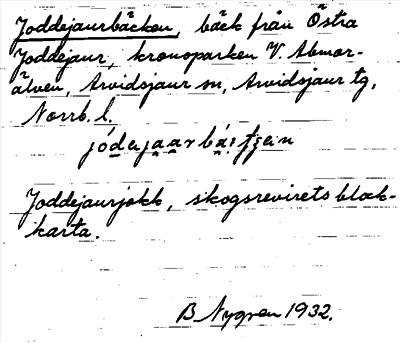 Joddejaurbäcken, bäck från Östra
Joddejaur, kronoparken V. Abmor-
älven, Arvidsjaur sn, Arvidsjaur tg,
Norrb. l.
Joddejaurjokk, skogsrevirets block-
karta.
B Nygren 1932.